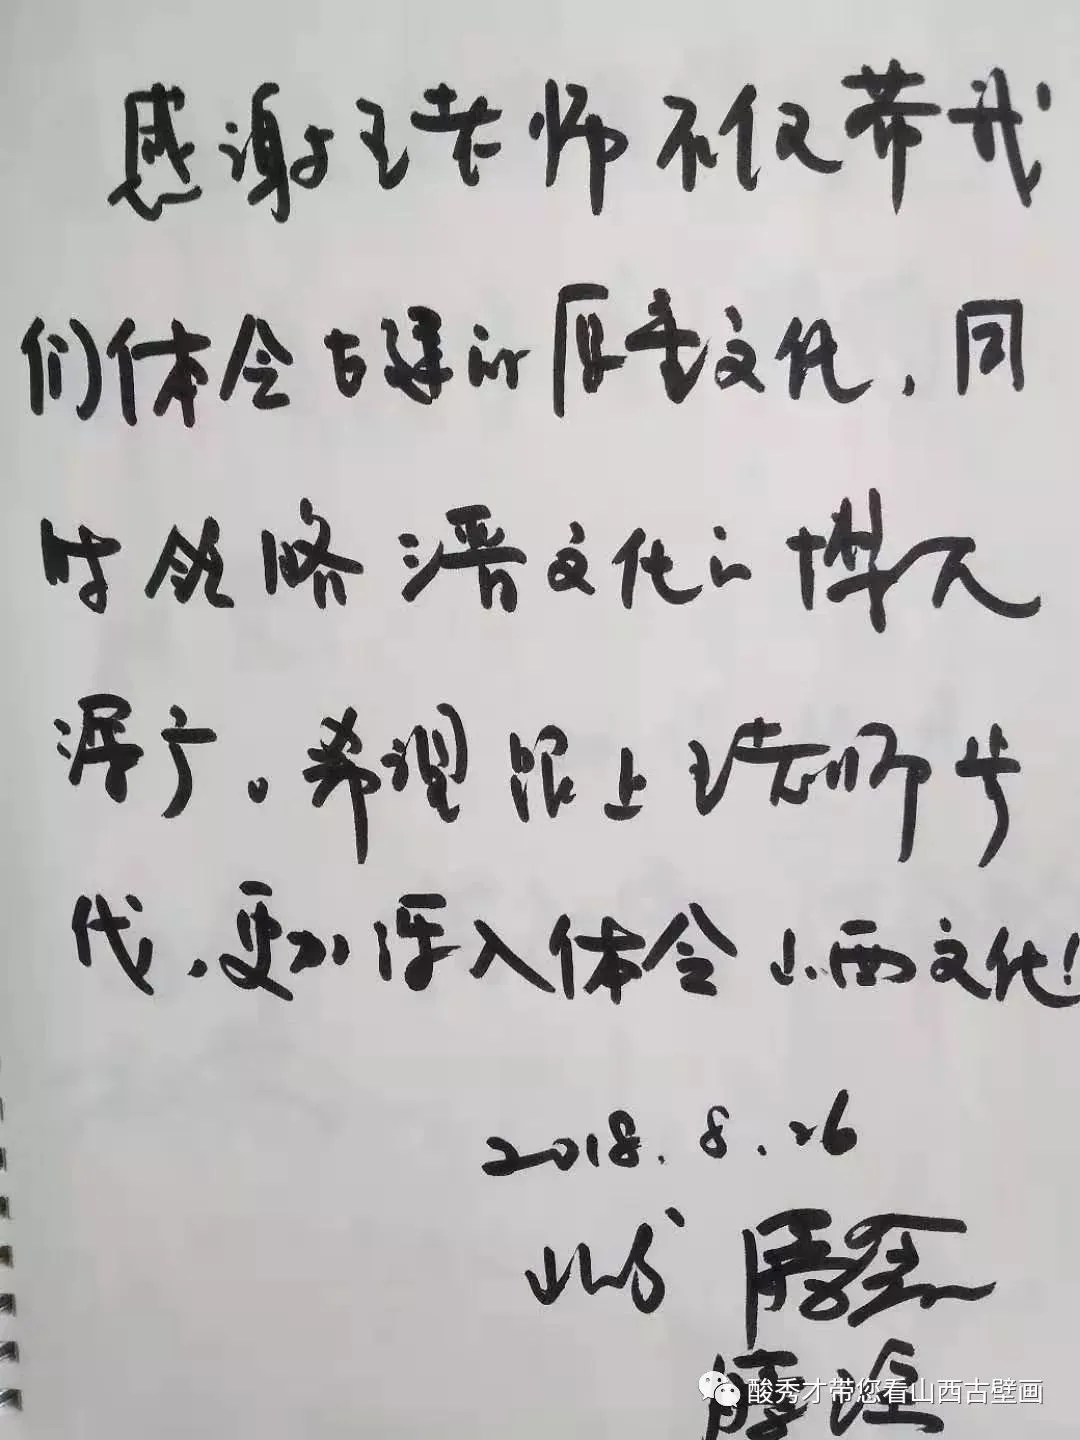 感谢王老师不仅带我
们体会古建的厚重文化，同
时领略晋文化的博大
深广。希望跟上王老师步
伐，更加深入体会山西文化！
2018.8.26
酸秀才带您看山西古壁画